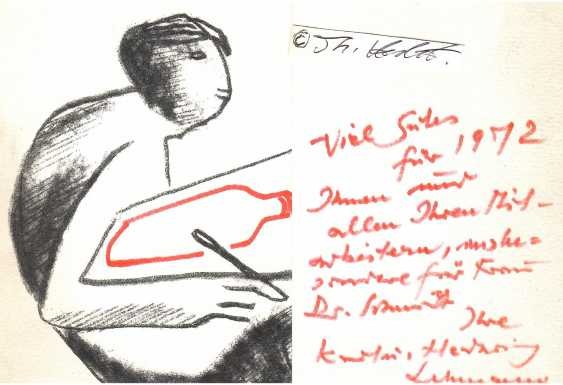 © Th.
Viel Gutes
für 1972
Ihnen und
allen Ihren Mit-
arbeitern, insbe-
sondere für Frau
Dr. Schmidt
Ihre
Hedwig
Lehmann